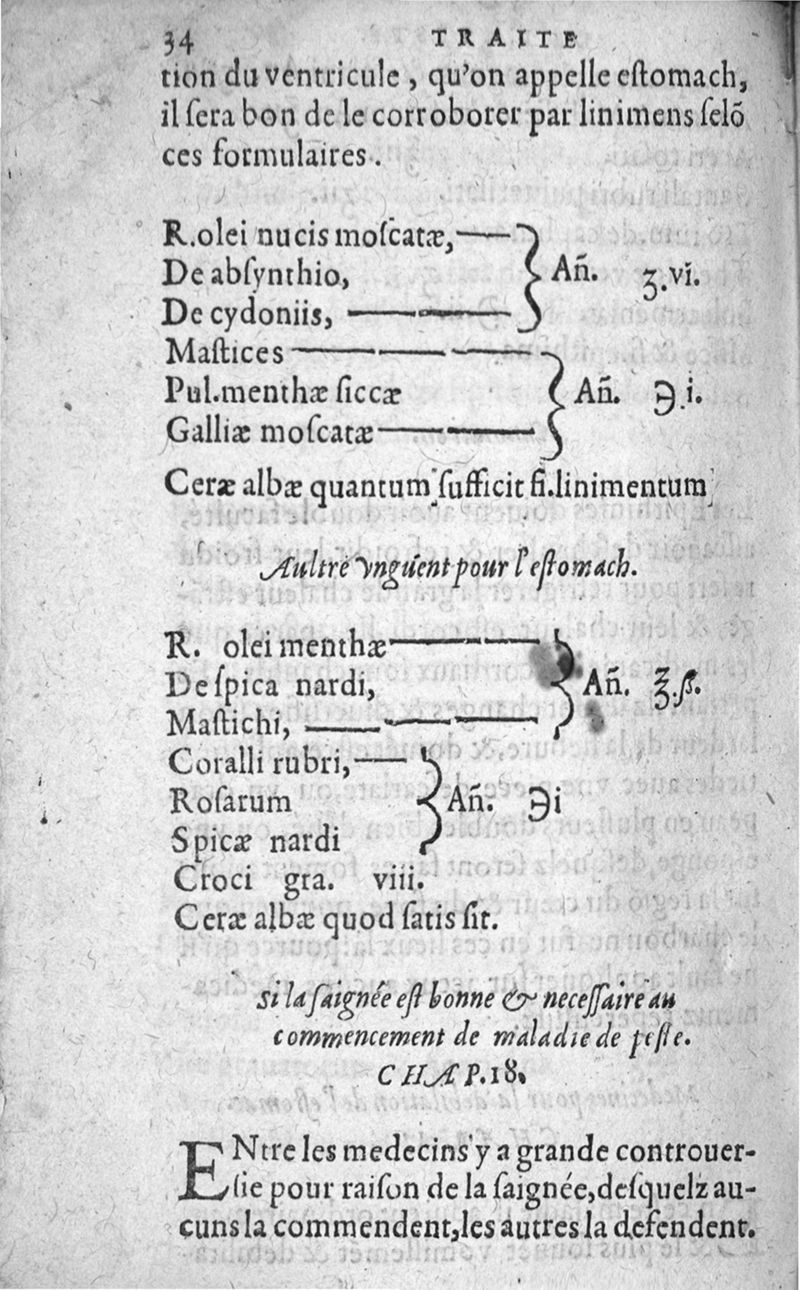 34 TRAITE
tion du ventricule, qu'on appelle eſtomach,
il ſera bon de le corroborer par linimens ſelõ
ces formulaires.
R. olei nucis moſcatæ,
De abſynthio,
De cydoniis,
Añ. ʒ.vi.
Maſtices
Pul.menthæ ſiccæ
Galliæ moſcatæ
Añ. ℈.i.
Ceræ albæ quantum ſufficit fi.linimentum
Aultre vnguent pour l'eſtomach.
R. olei menthæ
De ſpica nardi,
Maſtichi,
Añ. ℥.ß.
Coralli rubri,
Roſarum
Spicæ nardi
Añ. ℈i
Croci gra. viii.
Ceræ albæ quod ſatis ſit.
Si la ſaignée eſt bonne & neceſſaire au
commencement de maladie de peſte.
CHAP.18.
ENtre les medecins y a grande controuer-
ſie pour raiſon de la ſaignée,deſquelz au-
cuns la commendent,les autres la defendent.